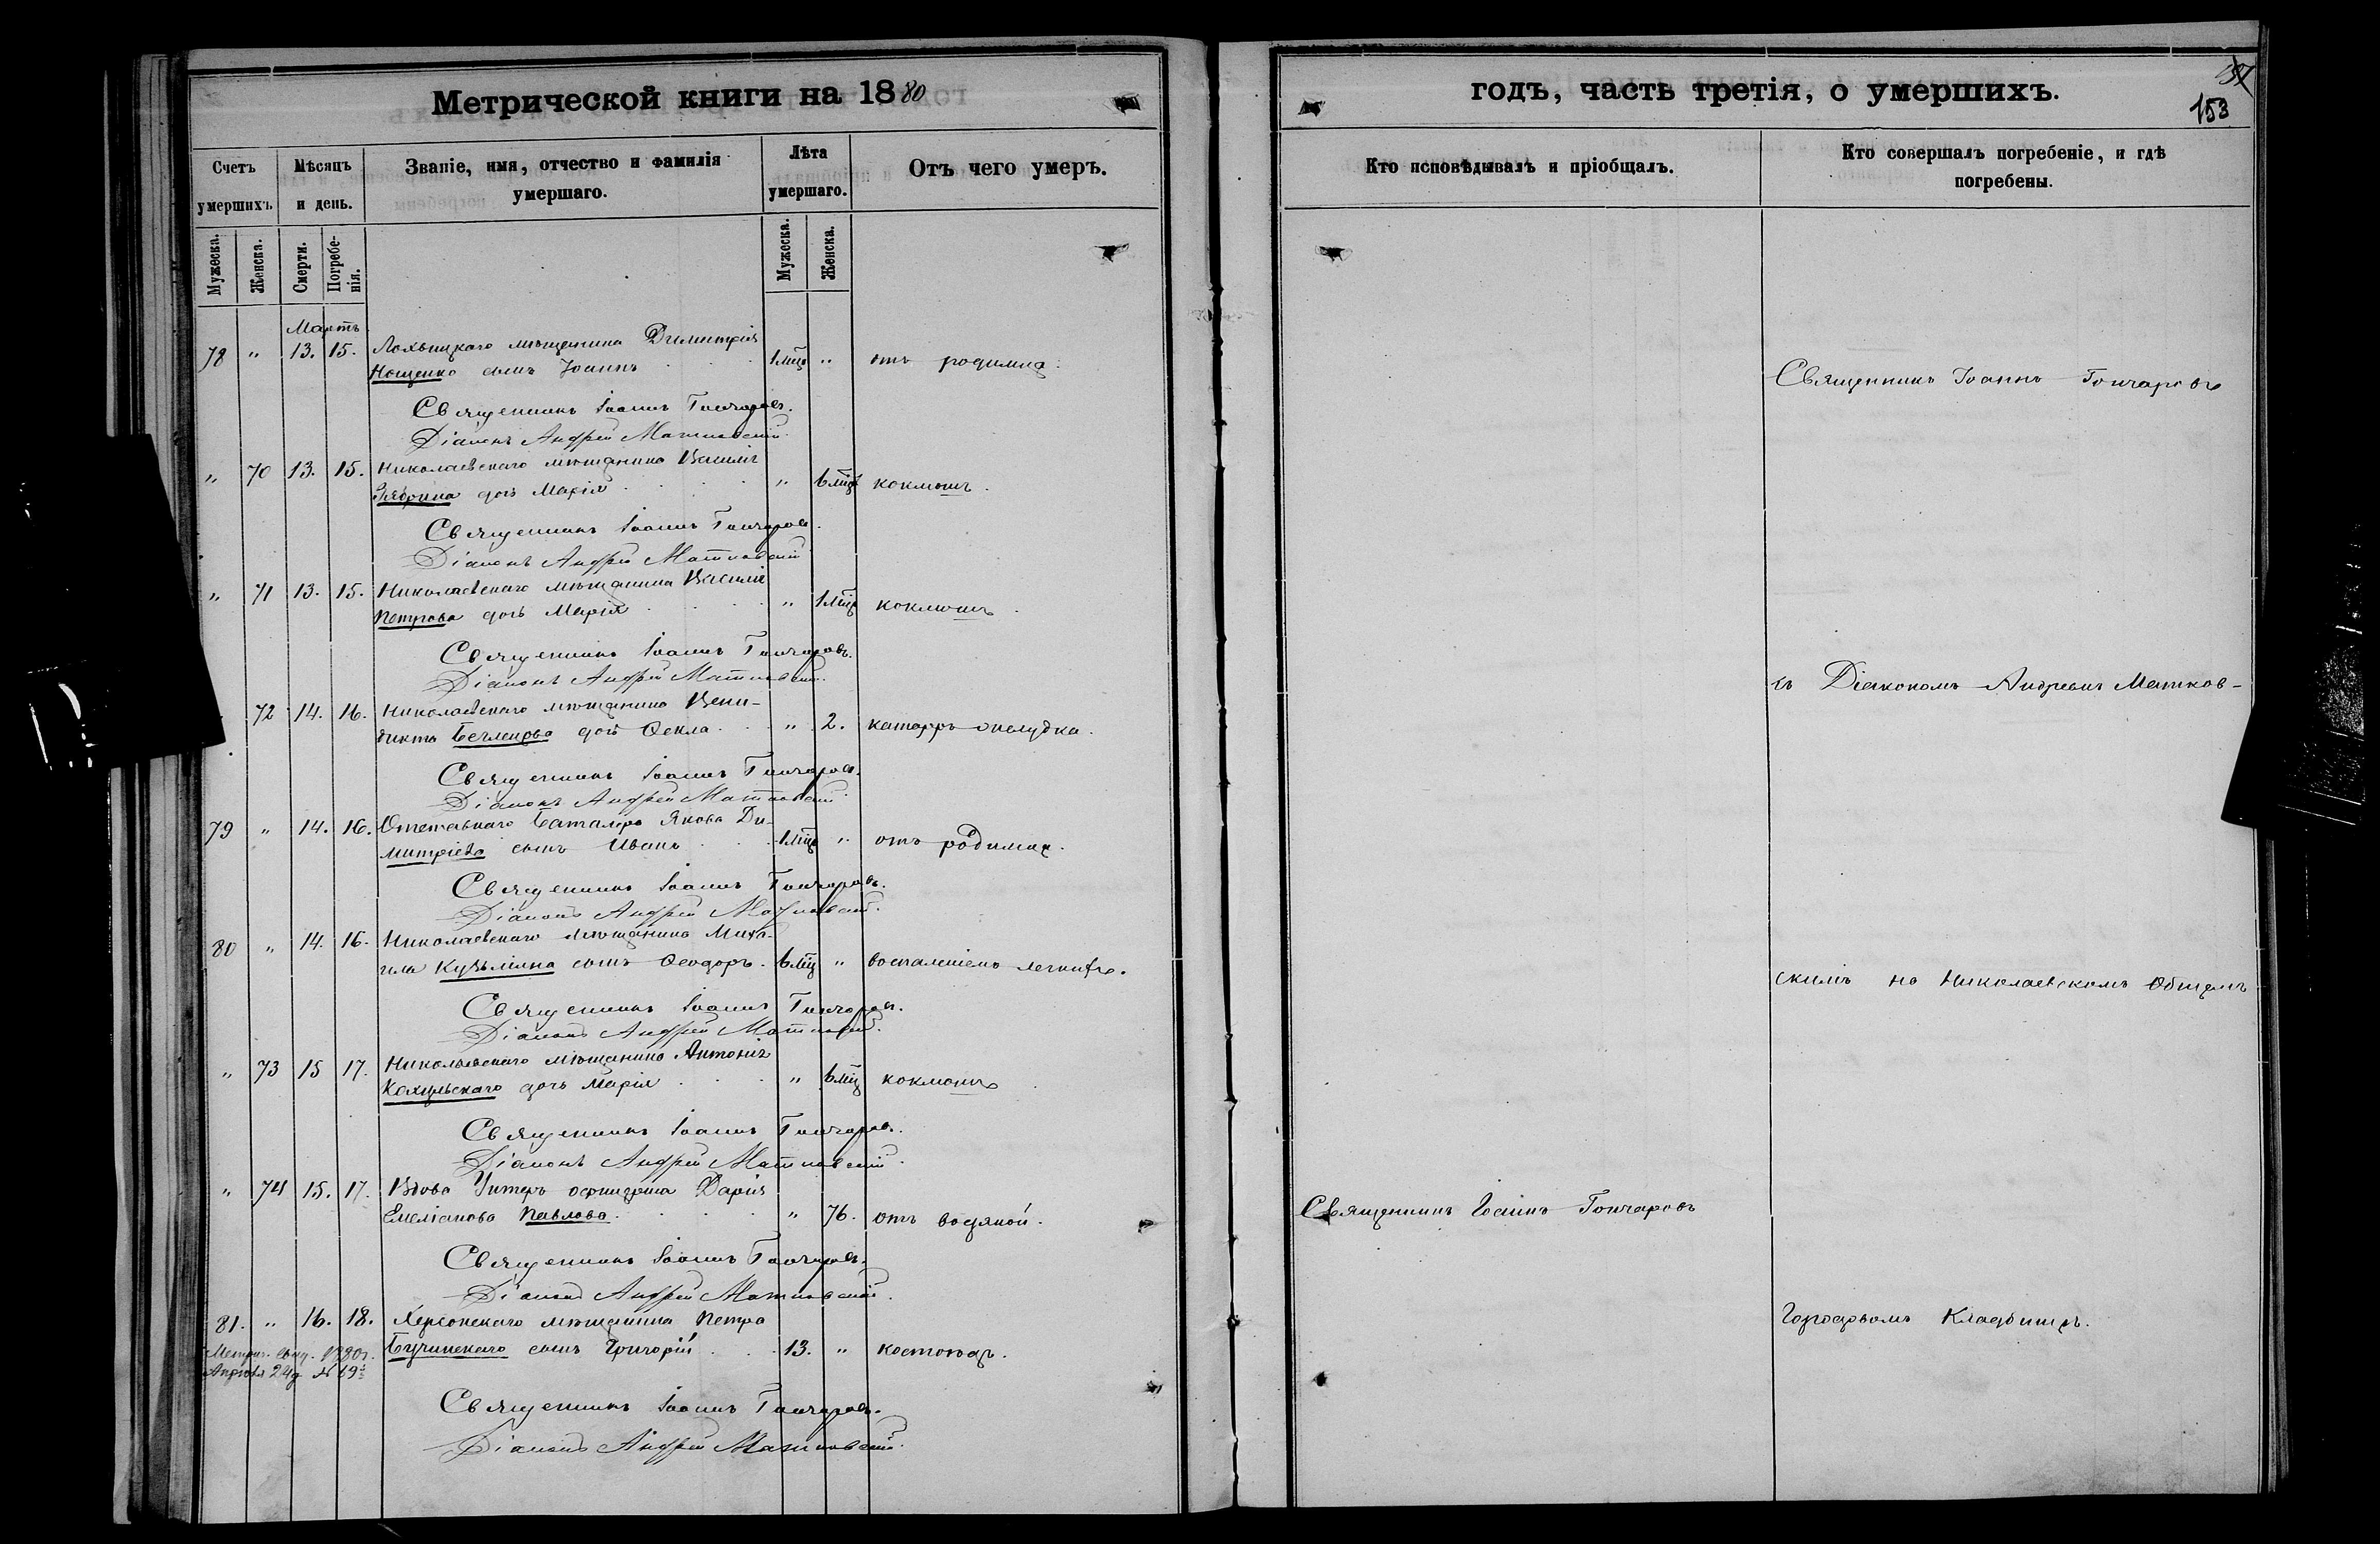 Метрической книги на 1880
Счетъ умершихъ.
Мѣсяцъ и день.
Званіе, имя, отчество и фамилія умершаго.
Лѣта умершаго.
Отъ чего умеръ.
Мужеска. Женска. Смерти. Погребенія. Мужеска. Женска.
Мартъ
78 " 13. 15. Лохвицкаго мѣщанина Димитрія
Нощенко сынъ Іоаннъ 1 мцъ " отъ родимца.
Священникъ Іоаннъ Гончаровъ.
Діаконъ Андрей Матковскій.
" 70 13. 15. Николаевскаго мѣщанина Василія
дочь Марія " 6 мцъ коклюшъ.
Священникъ Іоаннъ Гончаровъ.
Діаконъ Андрей Матковскій
" 71 13. 15. Николаевскаго мѣщанина Василія
Петрова дочь Марія " 1 мцъ коклюшъ.
Священникъ Іоаннъ Гончаровъ.
Діаконъ Андрей Матковскій.
72 14. 16. Николаевскаго мѣщанина Вени-
дикта дочь Ѳекла " 2. катарръ желудка.
Священникъ Іоаннъ Гончаровъ.
Діаконъ Андрей Матковскій
79 " 14. 16. Отставнаго Баталера Якова Ди-
митріева сынъ Иванъ 1 мцъ " отъ родимца.
Священникъ Іоаннъ Гончаровъ.
Діаконъ Андрей Матковскій.
80 " 14. 16. Николаевскаго мѣщанина Миха-
ила Кузьмина сынъ Ѳеодоръ. 6 мцъ " воспаленіемъ легкихъ.
Священникъ Іоаннъ Гончаровъ.
Діаконъ Андрей Матковскій.
" 73 15 17. Николаевскаго мѣщанина Антонія
дочь Марія " 6 мцъ коклюшъ
Священникъ Іоаннъ Гончаровъ.
Діаконъ Андрей Матковскій.
" 74 15. 17. Вдова Унтеръ офицерша Дарія
Емеліанова Павлова " 76. отъ водяной.
Священникъ Іоаннъ Гончаровъ.
Діаконъ Андрей Матковскій.
81. " 16. 18. Херсонскаго мѣщанина Петра
Бучинскаго сынъ Григорій 13. " костоѣда.
Метрич. 1880 г.
Апрѣля 24 д. № 69
Священникъ Іоаннъ Гончаровъ.
Діаконъ Андрей Матковскій.
годъ, часть третія, о умершихъ.
153
Кто исповѣдывалъ и пріобщалъ.
Кто совершалъ погребеніе, и гдѣ погребены.
Священникъ Іоаннъ Гончаровъ
съ Діакономъ Андреемъ Матков-
скимъ на Николаевскомъ Общемъ
Священникъ Іоаннъ Гончаровъ
Городовомъ Кладбищѣ.